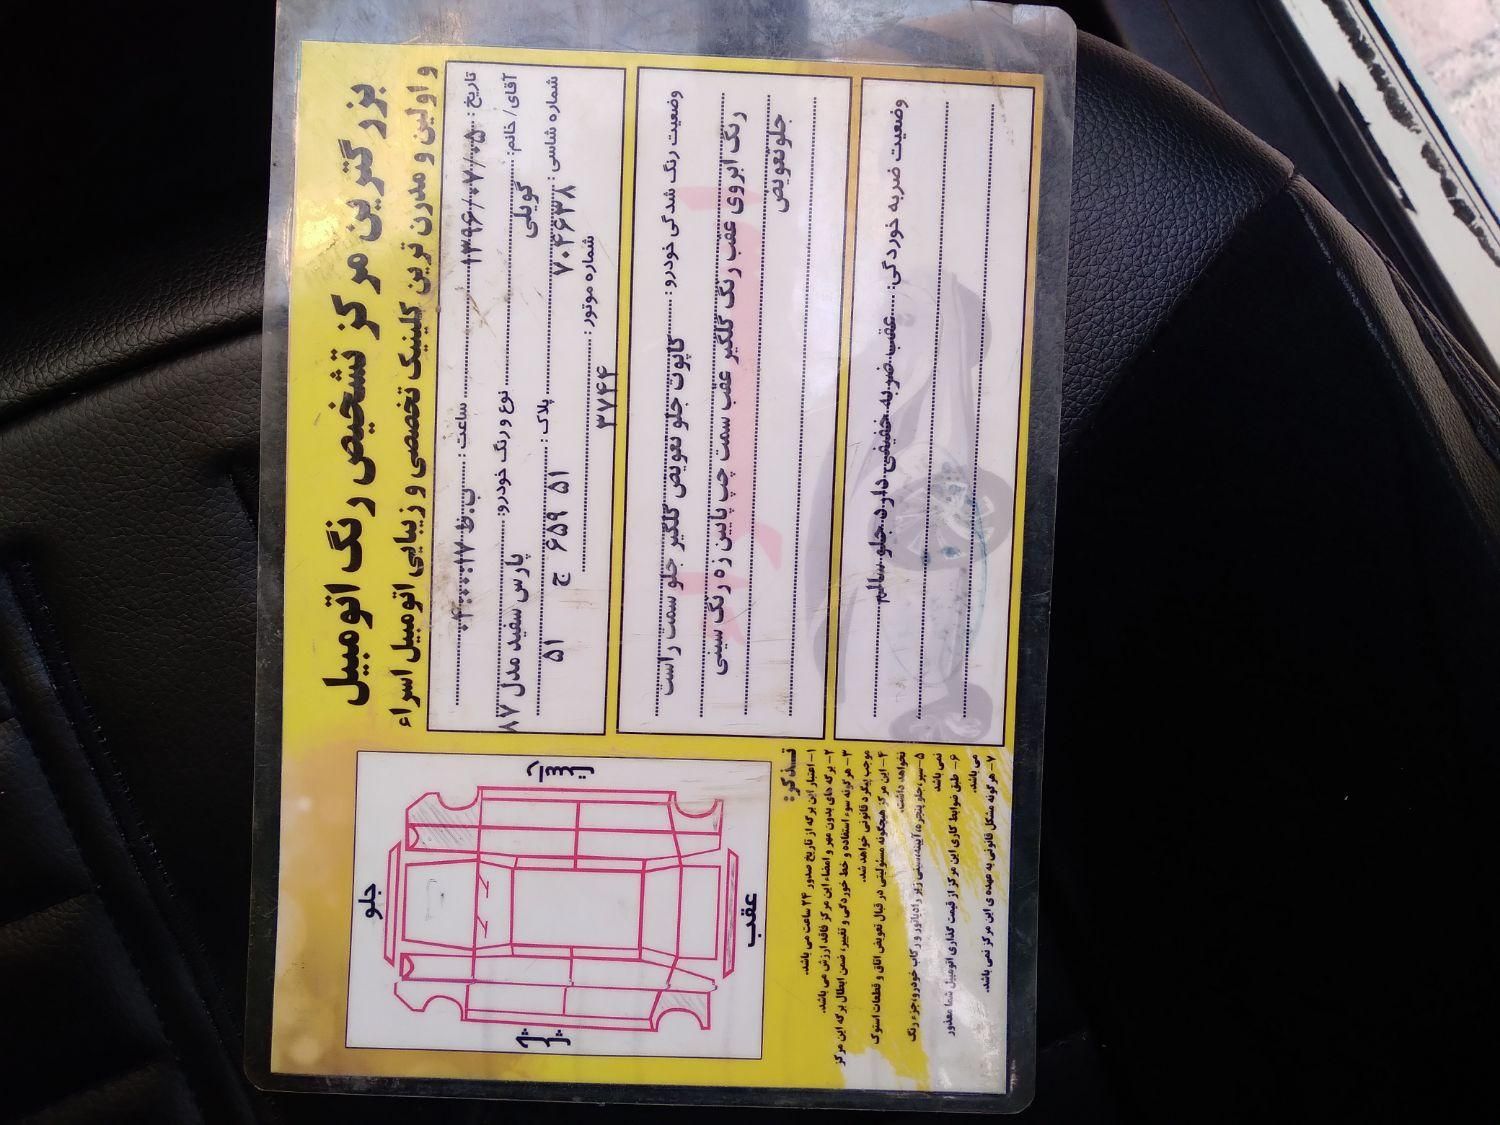 بزرگترین مرکز تشخیص رنگ اتومبیل
و اولین و مدرن ترین کلینیک تخصصی و زیبایی اتومبیل اسراء
تاریخ: ۱۳۹۶/۰۷/۰۵ ساعت: ب.ظ ۰۴:۰۰:۱۷
آقای/ خانم: گویلی نوع و رنگ خودرو: پارس سفید مدل ۸۷
شماره شاسی: ۷۰۴۶۳۸ پلاک: ۵۱ ۶۵۹ ج ۵۱
شماره موتور: ۳۷۴۴
وضعیت رنگ شدگی خودرو: کاپوت جلو تعویض گلگیر جلو سمت راست
رنگ ابروی عقب رنگ گلگیر عقب سمت چپ پایین زه رنگ سینی
جلو تعویض
وضعیت ضربه خوردگی: عقب ضربه خفیفی دارد جلو سالم
جلو
عقب
چپ
تذکر:
۱- اعتبار این برگه از تاریخ صدور ۲۴ ساعت می باشد.
۲- برگه های بدون مهر و امضاء این مرکز فاقد ارزش می باشد.
۳- هرگونه سوء استفاده و خط خوردگی و تغییر، ضمن ابطال برگه این مرکز
موجب پیگرد قانونی خواهد شد.
۴- این مرکز هیچگونه مسئولیتی در قبال تعویض اتاق و قطعات استوک
نخواهد داشت.
۵- سپر، جلو پنجره، آیینه، سینی زیر رادیاتور و رکاب خودرو، جزء رنگ
نمی باشد
۶- طبق ضوابط کاری این مرکز از قیمت گذاری اتومبیل شما معذور
می باشد.
۷- هرگونه مشکل قانونی به عهده ی این مرکز نمی باشد.